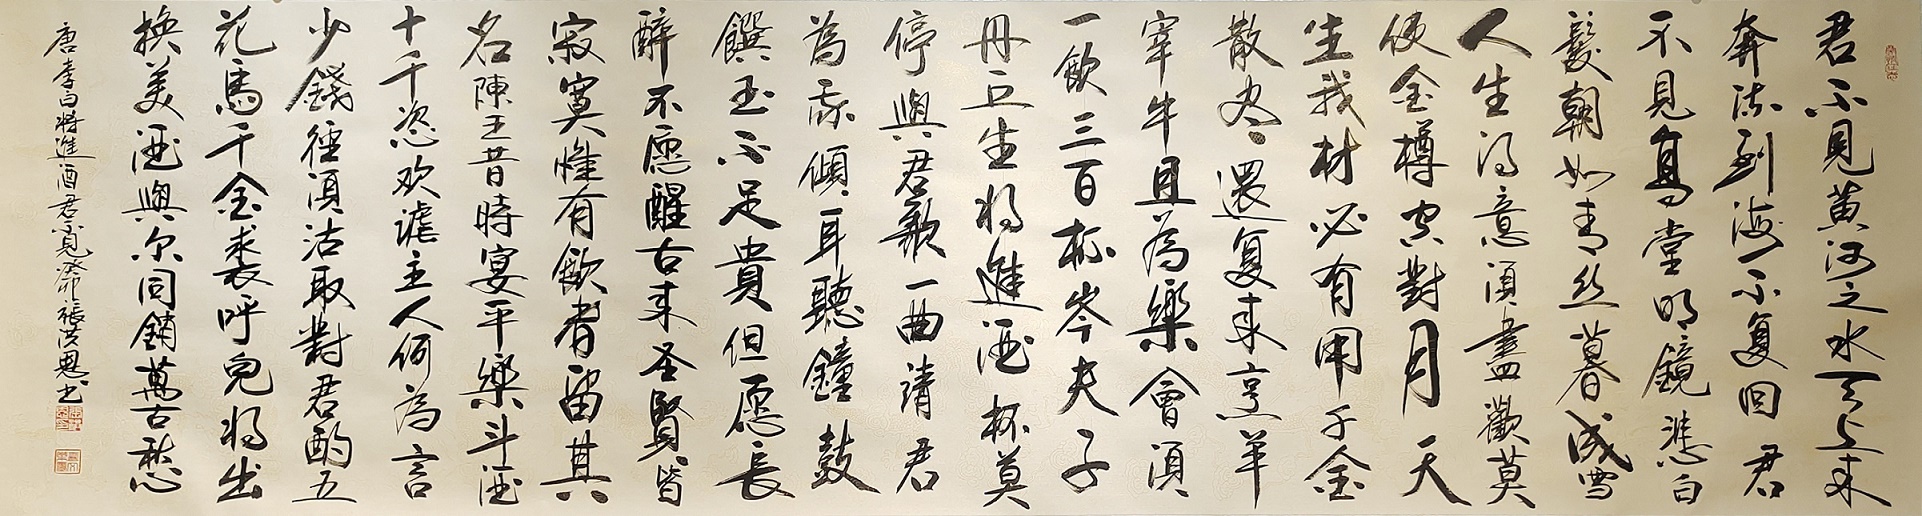 君不見黄河之水天上来
奔流到海不复回君
不見高堂明鏡悲白
髮朝如青丝暮成雪
人生得意須盡歡莫
使金樽空對月天
生我材必有用千金
散尽還复来烹羊
宰牛且為樂會須
一飲三百杯岑夫子
丹丘生将進酒杯莫
停與君歌一曲請君
為我傾耳聽鐘鼓
饌玉不足貴但愿長
醉不愿醒古来圣賢皆
寂寞惟有飲者留其
名陳王昔時宴平樂斗酒
十千恣欢谑主人何為言
少錢徑須沽取對君酌五
花馬千金裘呼兒将出
换美酒與尔同銷萬古愁
唐李白将進酒君不見癸卯張洪恩书